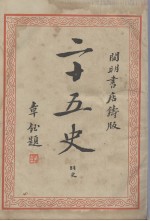 開明書店鑄版
二十五史
章鈺題